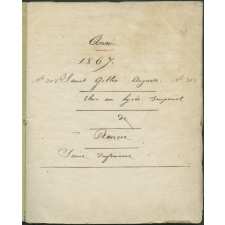 Année
1867.
N° 308 Saint Gilles Auguste. N° 308
Elève au lycée Impérial
de
Rouen
Seine Inférieure